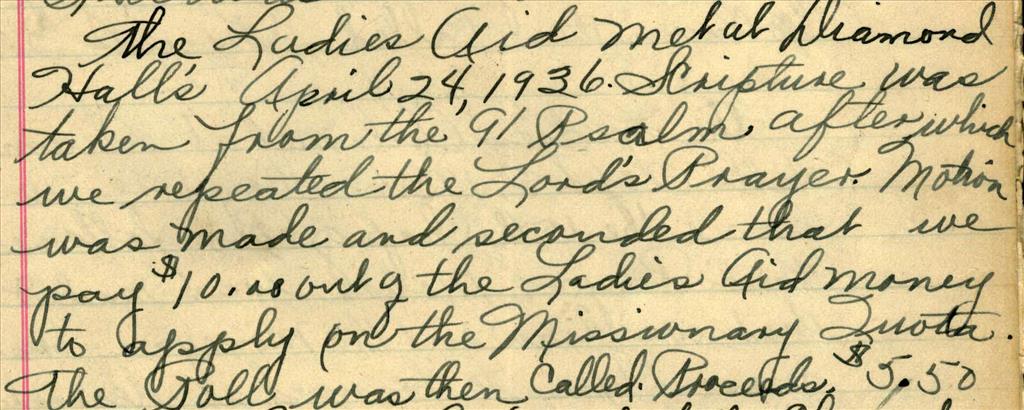 The Ladies Aid met at Diamond
Hall's April 24, 1936. Scripture was
taken from the 91 Psalm after which
we repeated the Lord's Prayer. Motion
was made and seconded that we
pay $10.00 out of the Ladies Aid money
to apply on the Missionary Quota.
The Roll was then called. Proceeds. $5.50